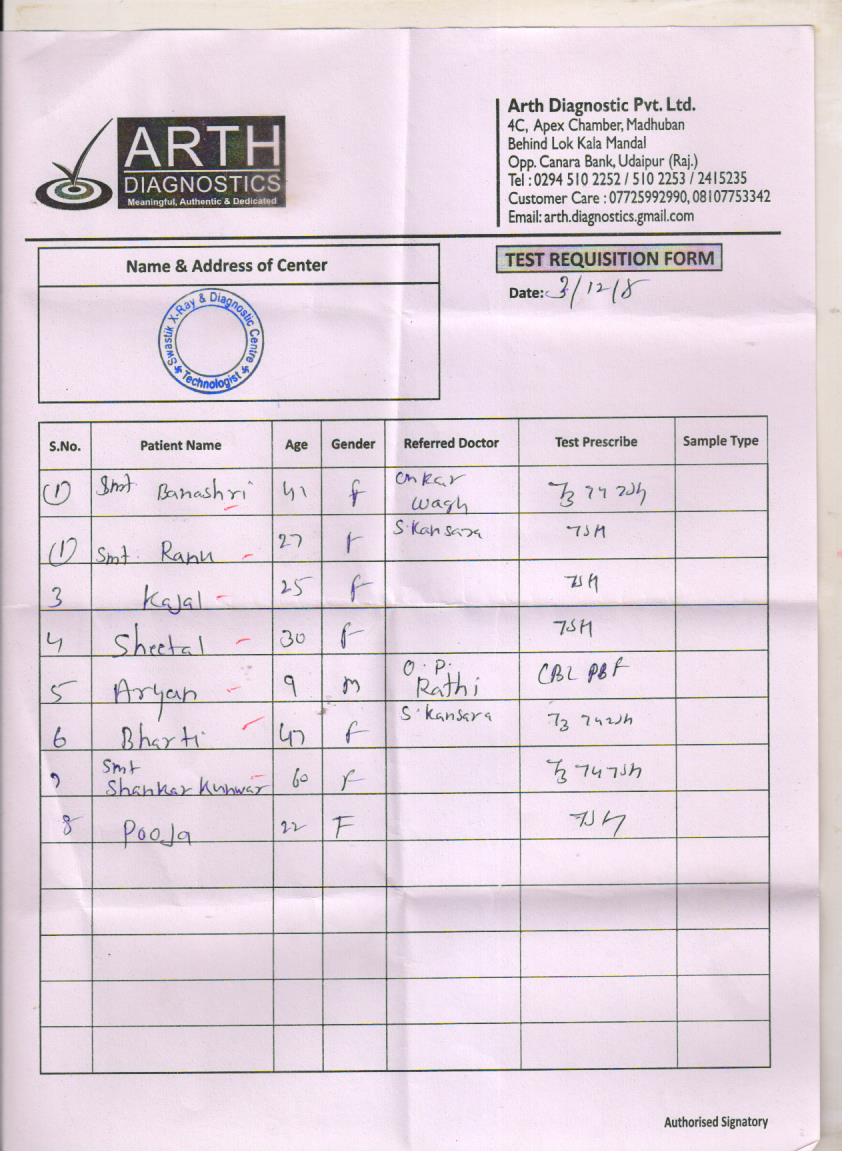 ARTH
DIAGNOSTICS
Meaningful, Authentic & Dedicated
Arth Diagnostic Pvt. Ltd.
4C, Apex Chamber, Madhuban
Behind Lok Kala Mandal
Opp. Canara Bank, Udaipur (Raj.)
Tel : 0294 510 2252 / 510 2253 / 2415235
Customer Care : 07725992990, 08107753342
Email: arth.diagnostics.gmail.com
Name & Address of Center
TEST REQUISITION FORM
Date: 3/12/8
Swastik X-Ray & Diagnostic Centre
Technologist
S.No. Patient Name Age Gender Referred Doctor Test Prescribe Sample Type
(1) Smt Banashri 41 f Omkar Wagh T3 T4 TSH
(1) Smt. Ranu 27 F S. Kansara TSH
3 Kajal 25 F TSH
4 Sheetal 30 F TSH
5 Aryan 9 m O. P. Rathi CBC PBF
6 Bharti 47 F S. Kansara T3 T4 TSH
7 Smt Shankar Kunwar 60 F T3 T4 TSH
8 Pooja 22 F TSH
Authorised Signatory